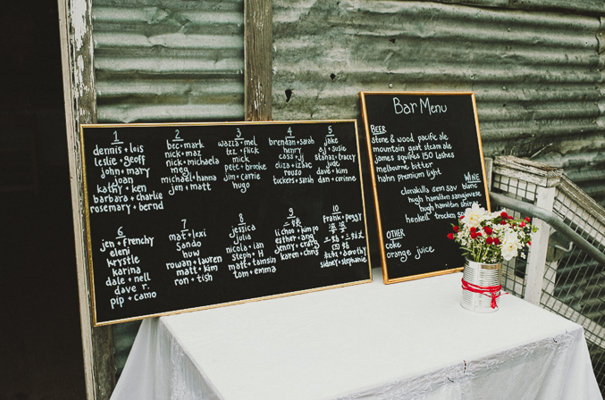 1
dennis + lois
leslie + geoff
john + mary
joan
kathy + ken
barbara + charlie
rosemary + bernd
2
bec + mark
nick + maz
nick + michaela
meg
michael + hanna
jen + matt
3
wazza + mel
tez + flick
mick
pete + brooke
jim + carrie
hugo
4
brendan + sarah
henry
casa + jj
liza + izaac
rouso
tuckers + sarah
5
jake
aj + susie
stonas + tracey
josh
dave + kim
dan + corinne
6
chong + frenchy
elena
krystle
karina
dale + nell
dave r.
pip + camo
7
mat + lexi
sando
laura
rowan +
matt + kim
ron + tish
8
jessica
julia
nicola + ian
steph + H
matt + tamsin
tom + emma
9
esther + ang
jenny + craig
karen + chris
10
frank + peggy
dorothy
sidney + stephanie
Bar Menu
BEER
stone & wood pacific ale
mountain goat steam ale
james squires 150 lashes
melbourne bitter
hahn premium light
WINE
sem sav blanc
high hamilton sangiovese
high hamilton shiraz
henkell trocken
OTHER
coke
orange juice